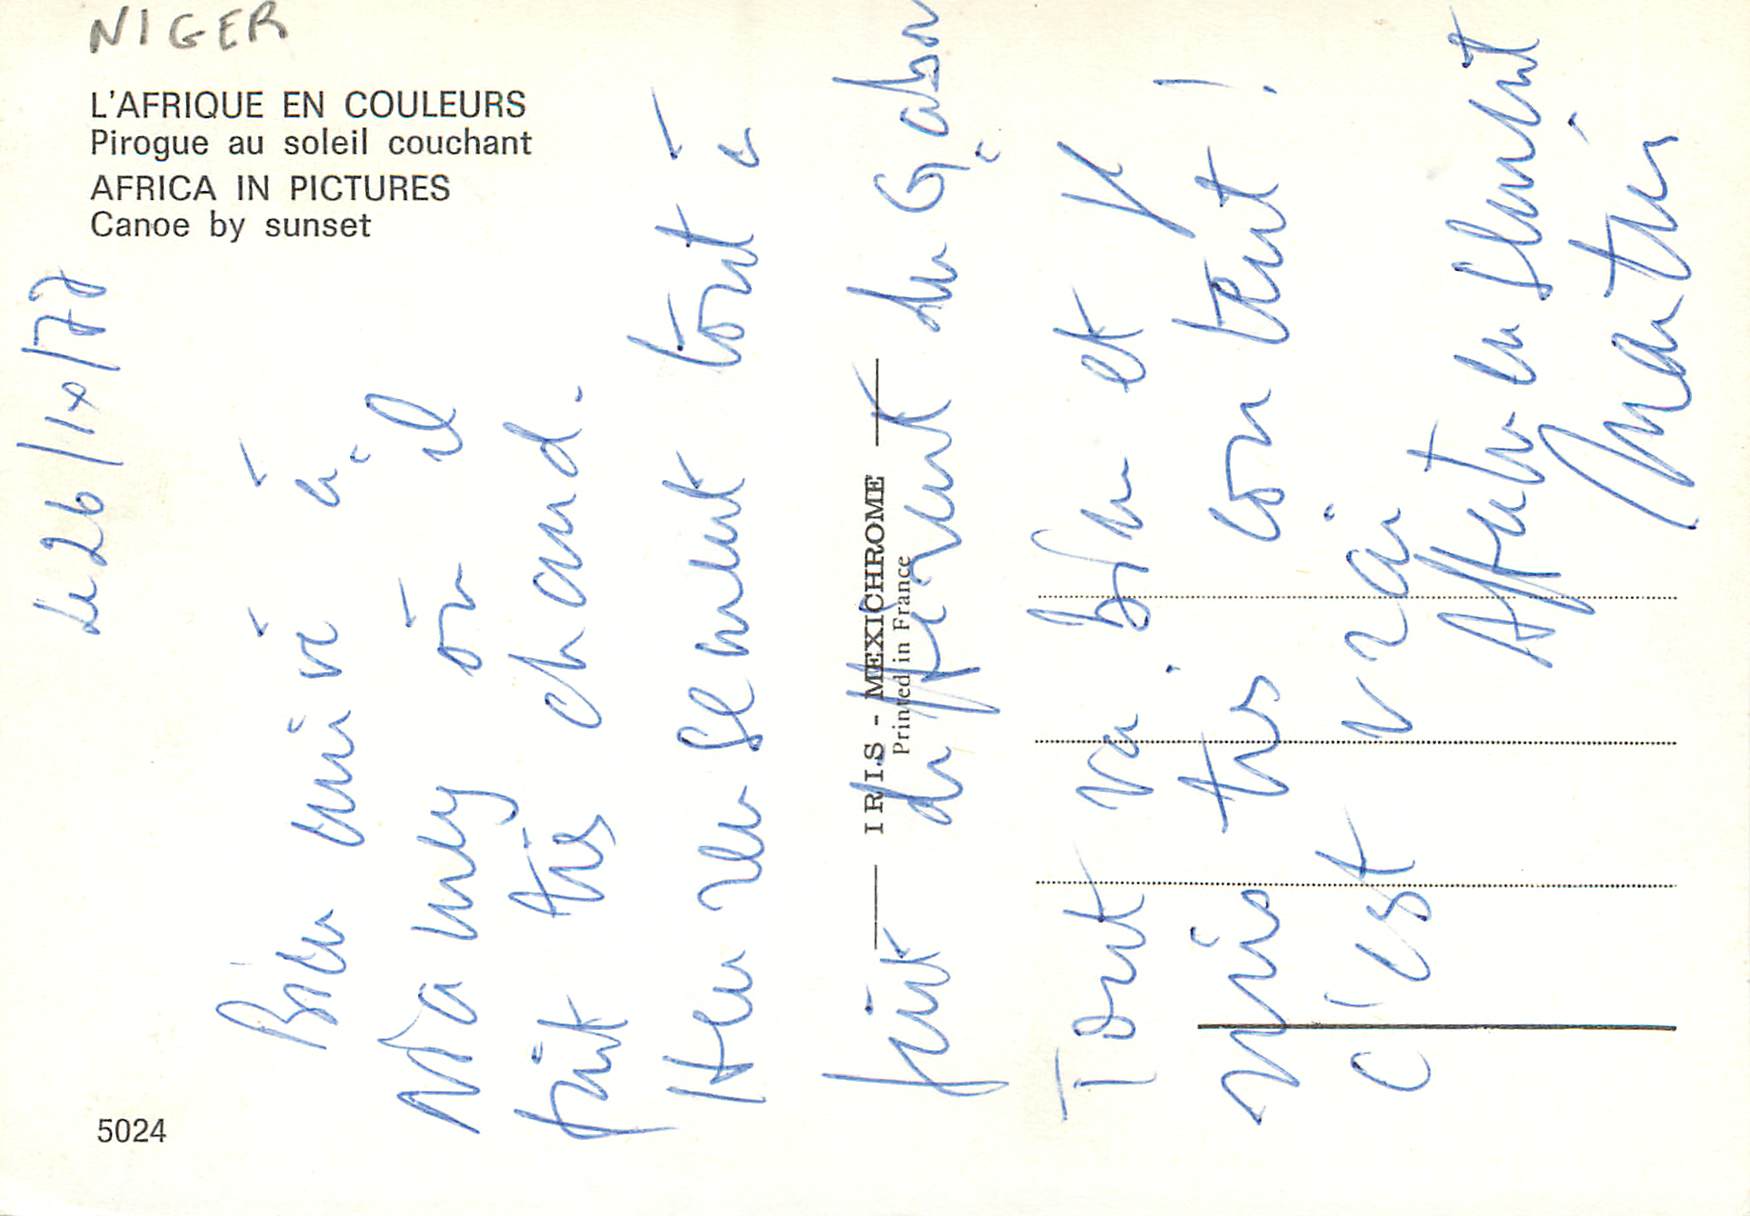 NIGER
L'AFRIQUE EN COULEURS
Pirogue au soleil couchant
AFRICA IN PICTURES
Canoe by sunset
Le 26/IX/77
Bien arrivé à
Niamey où il
fait très chaud.
Heureusement tout à
fait différent du Gabon
Tout va bien et V
mais très content !
c'est vrai
Affectueusement
Martin
IRIS - MEXICHROME
Printed in France
5024